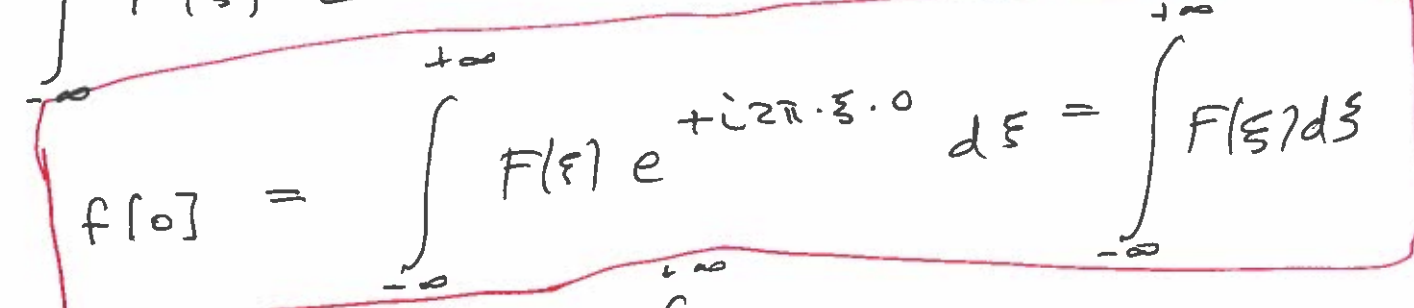 -∞
f[0] = ∫_{-∞}^{+∞} F(ξ) e^{+i2π·ξ·0} dξ = ∫_{-∞}^{+∞} F(ξ)dξ
+∞